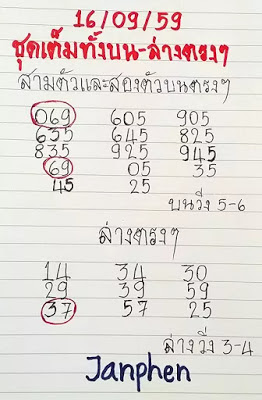 16/09/59
ชุดเต็มทั้งบน-ล่างตรงๆ
สามตัวและสองตัวบนตรงๆ
069 605 905
635 645 825
835 925 945
69 05 35
45 25
บนวิ่ง 5-6
ล่างตรงๆ
14 34 30
29 39 59
37 57 25
ล่างวิ่ง 3-4
Janphen